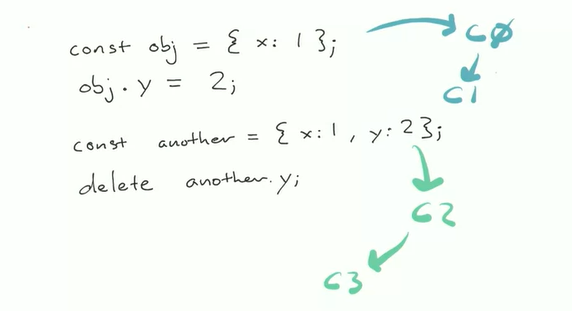 const obj = { x: 1 };
C0
obj.y = 2;
C1
const another = { x:1, y:2};
delete another.y;
C2
C3